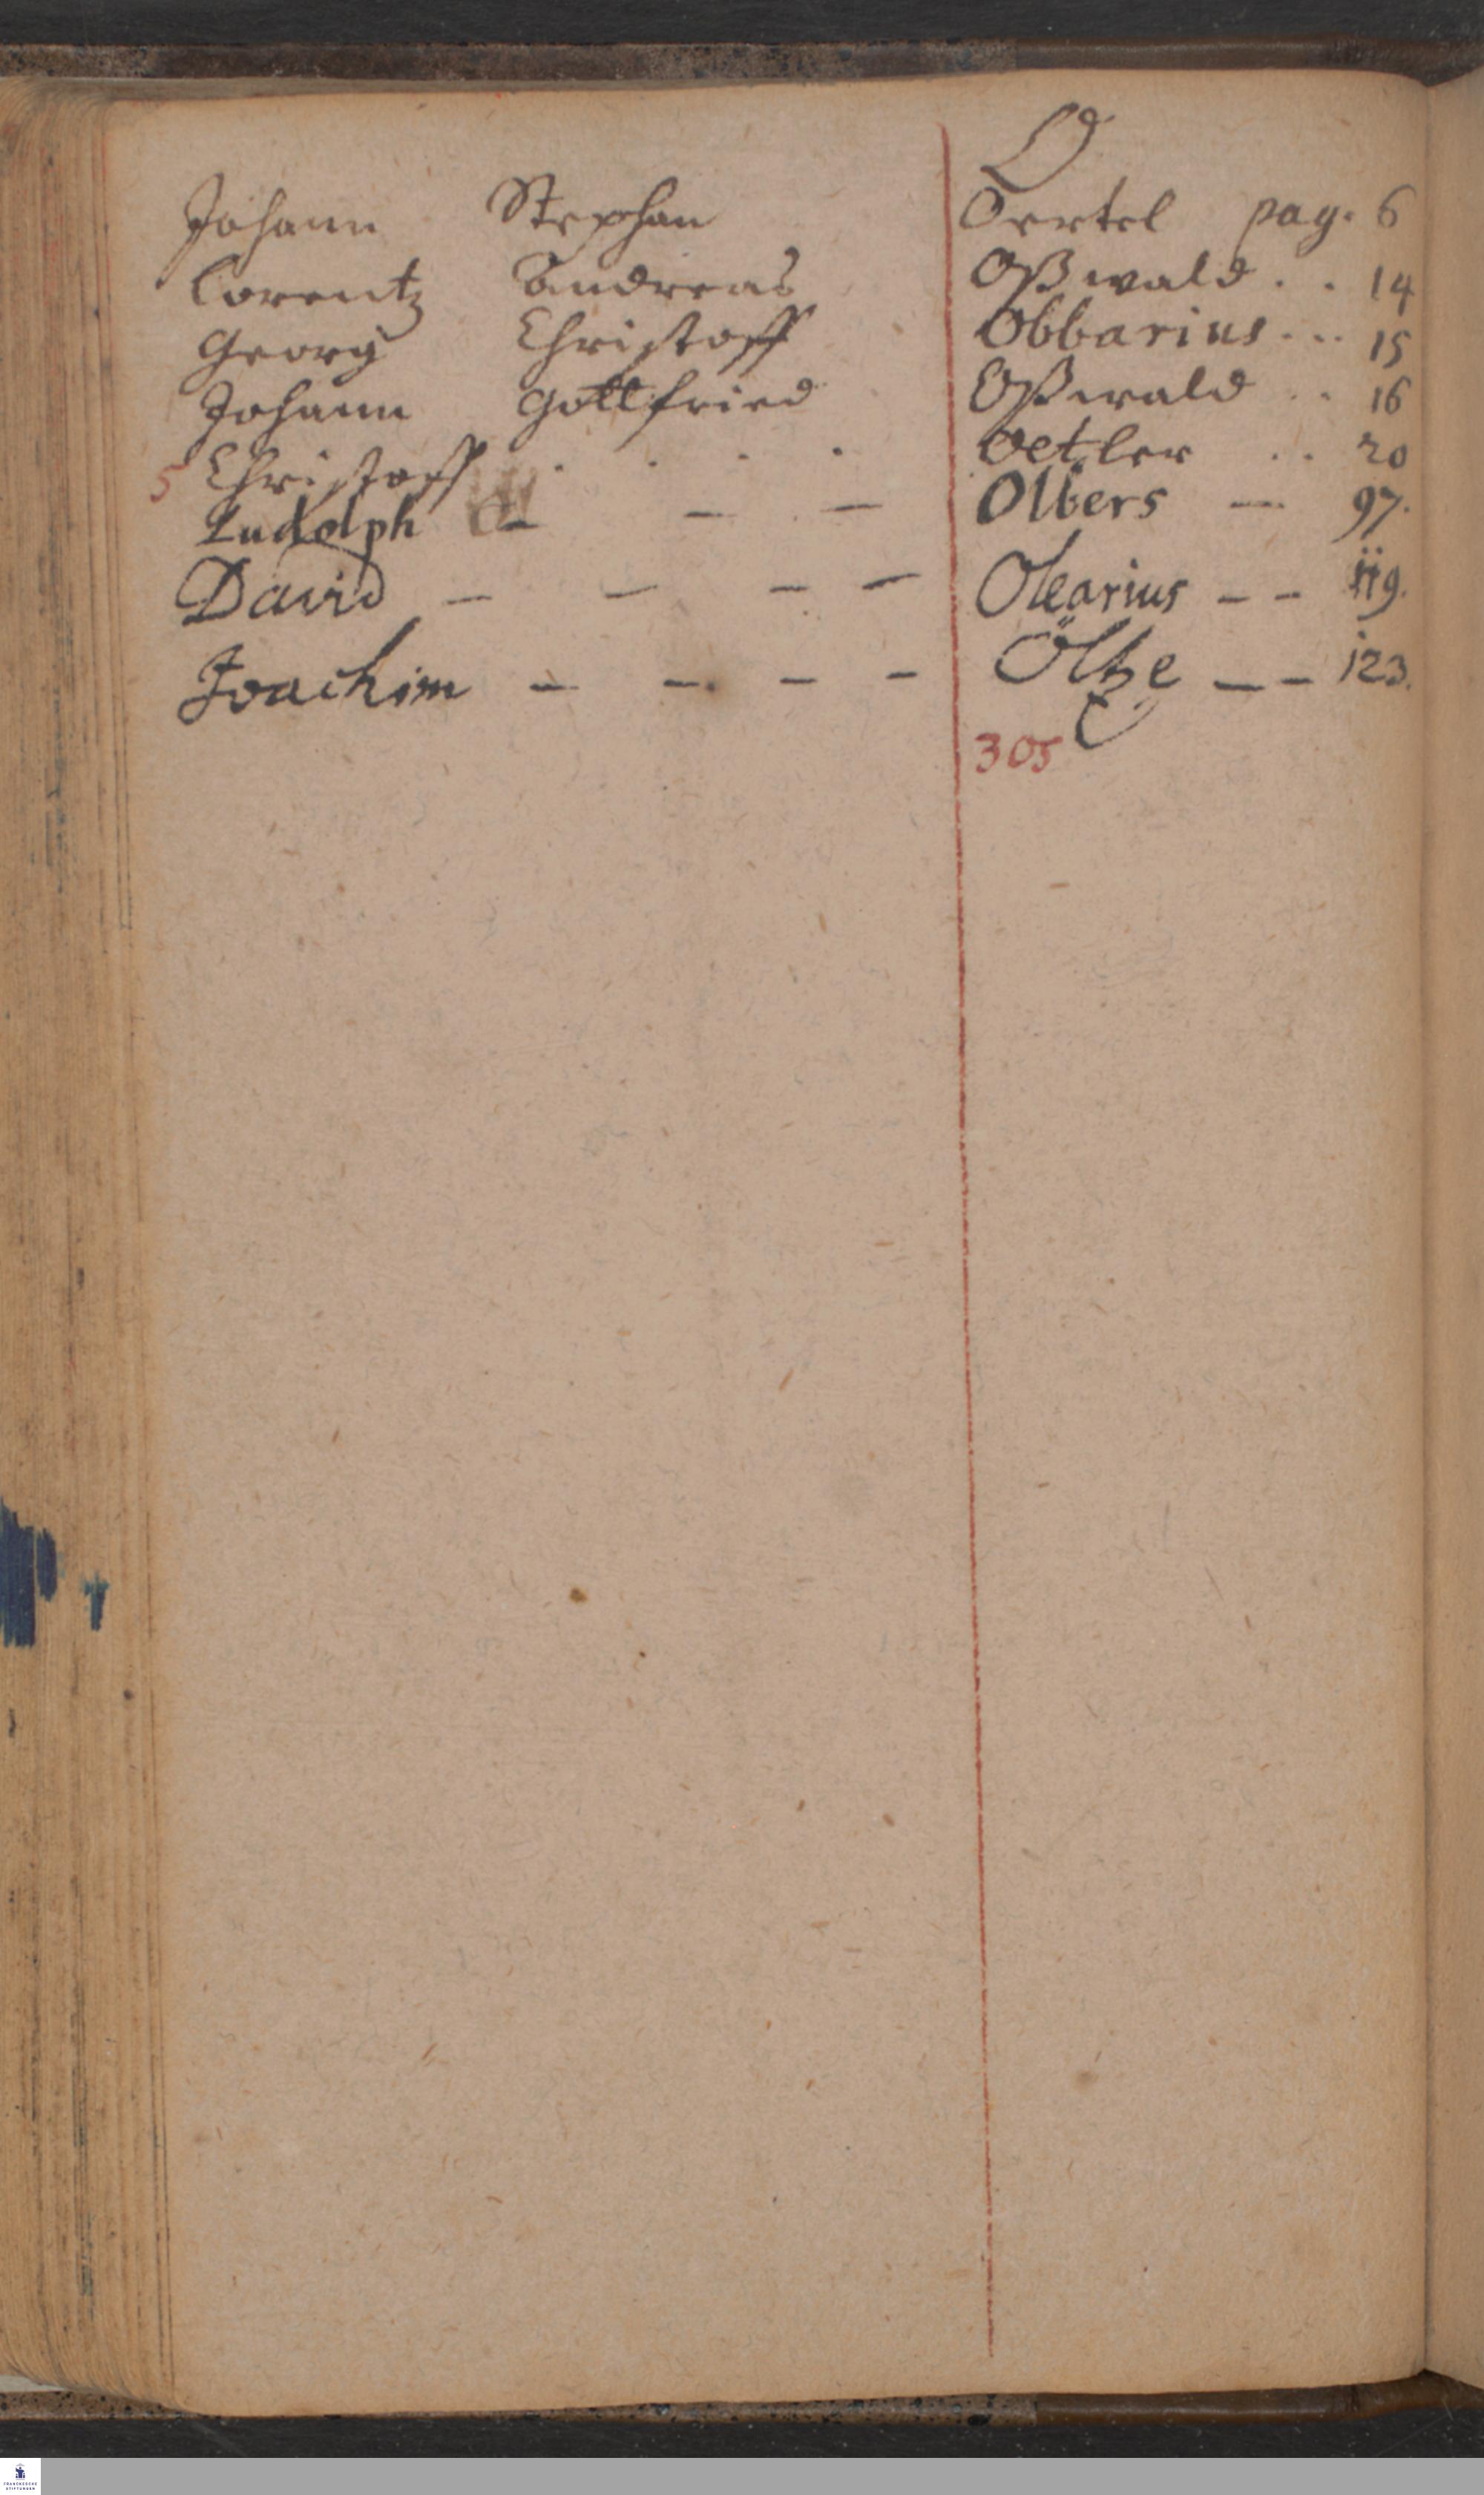 O
Johann Stephan Oertel pag. 6
Lorentz Andreas Oßwald . . 14
Georg Christoff Obbarius . . . 15
Johann Gottfried Oßwald . . 16
5 Christoff . . . . Oetler . . 20
Ludolph – – – Olbers — 97.
David – – – – Olearius – – 119.
Joachim – – – – Öltze – – 123.
305
FRANCKESCHE
STIFTUNGEN